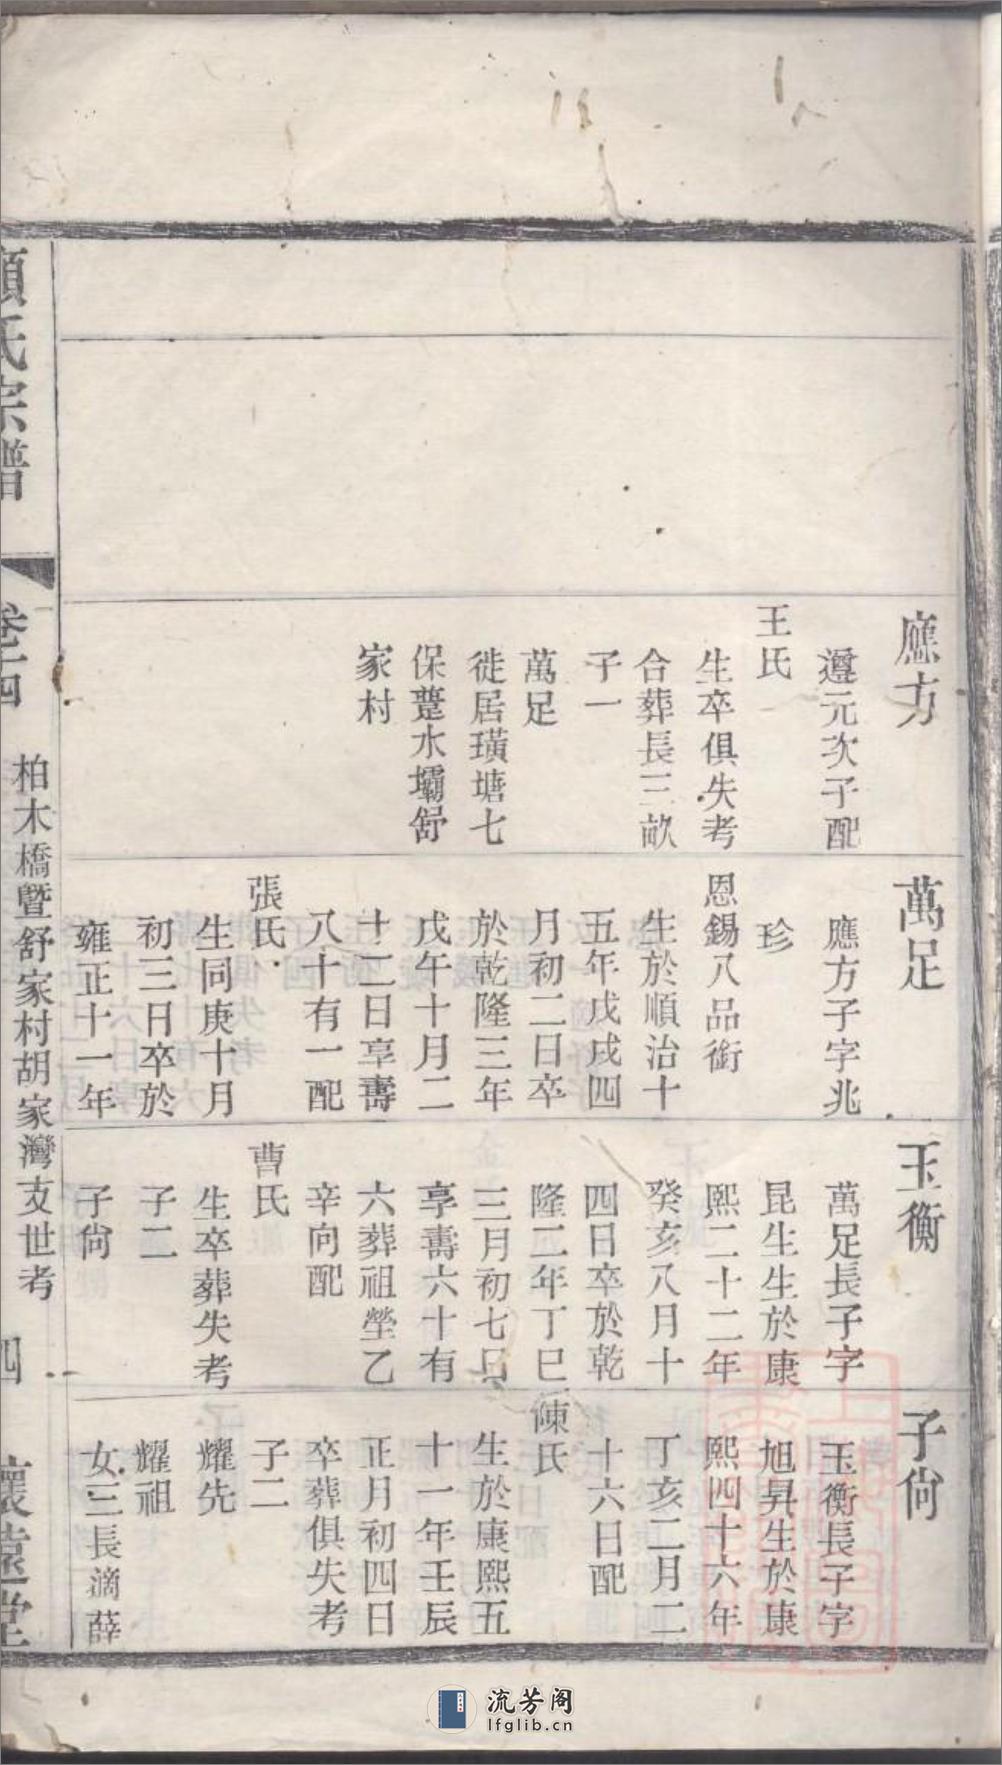 應方
邍元次子配
王氏
生卒俱失考
合葬長三畝
子一
萬足
徙居璜塘七
保躉水壩舒
家村
萬足
應方子字兆
珍
恩錫八品銜
生於順治十
五年戊戌四
月初二日卒
於乾隆三年
戊午十月二
十二日享壽
八十有一配
張氏
生同庚十月
初三日卒於
雍正十一年
玉衡
萬足長子字
昆生生於康
熙二十二年
癸亥八月十
四日卒於乾
隆二年丁巳
三月初七日
享壽六十有
六葬祖塋乙
辛向配
曹氏
生卒葬失考
子二
子尙
子尙
玉衡長子字
旭昇生於康
熙四十六年
丁亥二月二
十六日配
陳氏
生於康熙五
十一年壬辰
正月初四日
卒葬俱失考
子二
耀先
耀祖
女三長適薛
氏宗譜
卷之四
柏木橋暨舒家村胡家灣支世考
四
懷遠堂
流芳阁
lfglib.cn